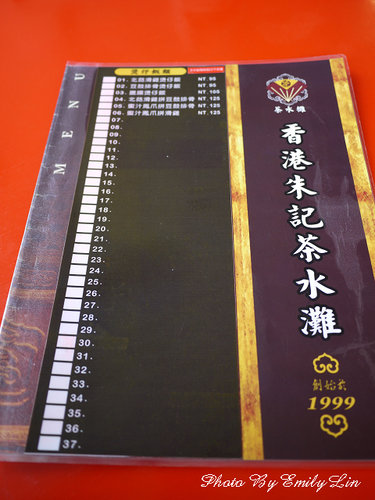 MENU
煲仔飯類
01. 北菇滑雞煲仔飯 NT. 95
02. 豆豉排骨煲仔飯 NT. 95
03. 臘腸煲仔飯 NT. 105
04. 北菇滑雞拼豆豉排骨 NT. 125
05. 蜜汁鳳爪拼豆豉排骨 NT. 125
06. 蜜汁鳳爪拼滑雞 NT. 125
07.
08.
09.
10.
11.
12.
13.
14.
15.
16.
17.
18.
19.
20.
21.
22.
23.
24.
25.
26.
27.
28.
29.
30.
31.
32.
33.
34.
35.
36.
37.
茶水攤
香港朱記茶水灘
創始於
1999
Photo By Emily Lin